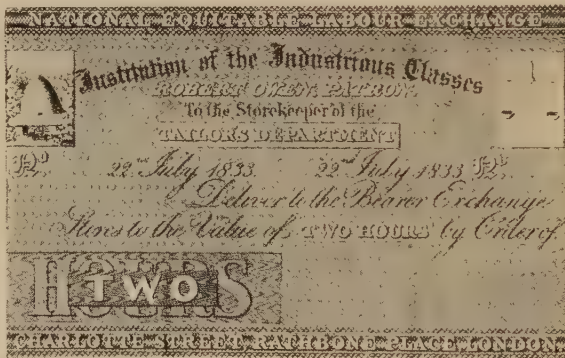 NATIONAL EQUITABLE LABOUR EXCHANGE
Institution of the Industrious Classes
ROBERT OWEN, PATRON.
To the Storekeeper of the
TAILORS DEPARTMENT
No 22nd July 1833. 22nd July 1833 No
Deliver to the Bearer Exchange
Stores to the Value of TWO HOURS by Order of
HOURS
TWO
CHARLOTTE STREET RATHBONE PLACE LONDON.